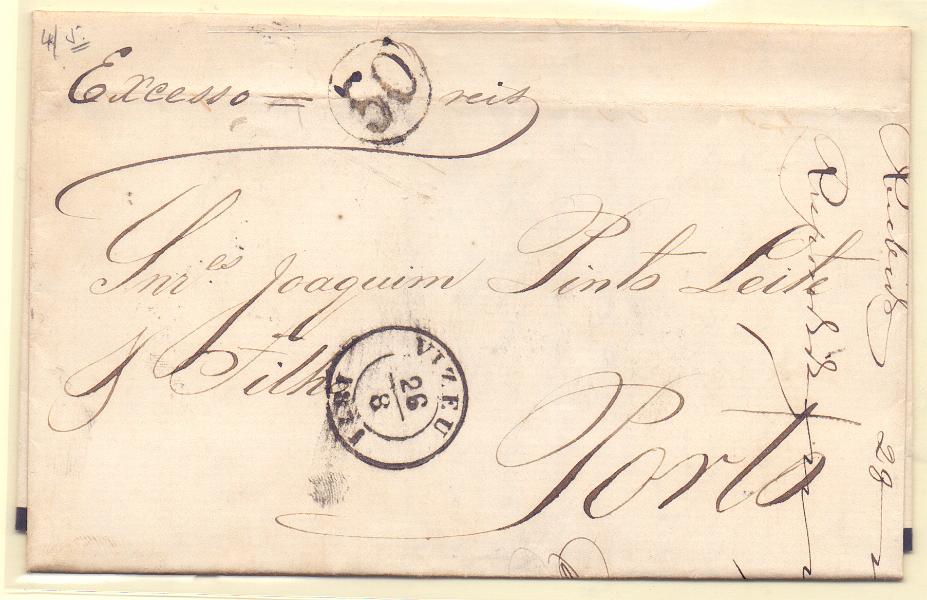 4/5.
Excesso = 50 reis
Snr.es Joaquim Pinto Leite
& Filho
VIZEU
26
8
1871
Porto
Recebida 29